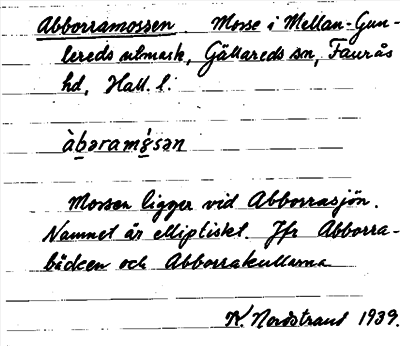 Abborramossen. Mosse i Mellan-Gun-
lereds utmark, Gällareds sn, Faurås
hd, Hall. l.
àbəramåsən
Mossen ligger vid Abborrasjön.
Namnet är elliptiskt. Jfr Abborra-
bäcken och Abborrakullarna
K. Nordstrand 1939.